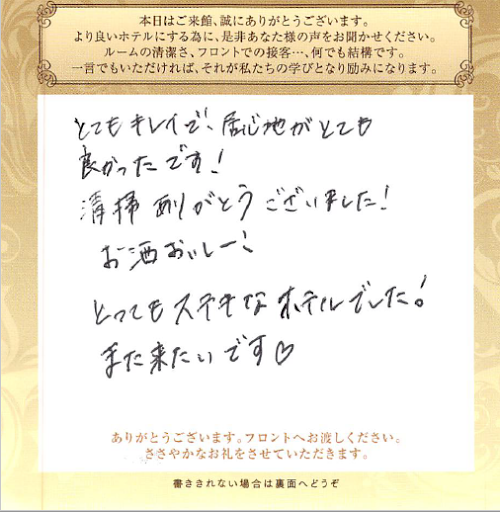 本日はご来館、誠にありがとうございます。
より良いホテルにする為に、是非あなた様の声をお聞かせください。
ルームの清潔さ、フロントでの接客…、何でも結構です。
一言でもいただければ、それが私たちの学びとなり励みになります。
とてもキレイで、居心地がとても
良かったです！
清掃ありがとうございました！
お酒おいしー！
とってもステキなホテルでした！
また来たいです♡
ありがとうございます。フロントへお渡しください。
ささやかなお礼をさせていただきます。
書ききれない場合は裏面へどうぞ